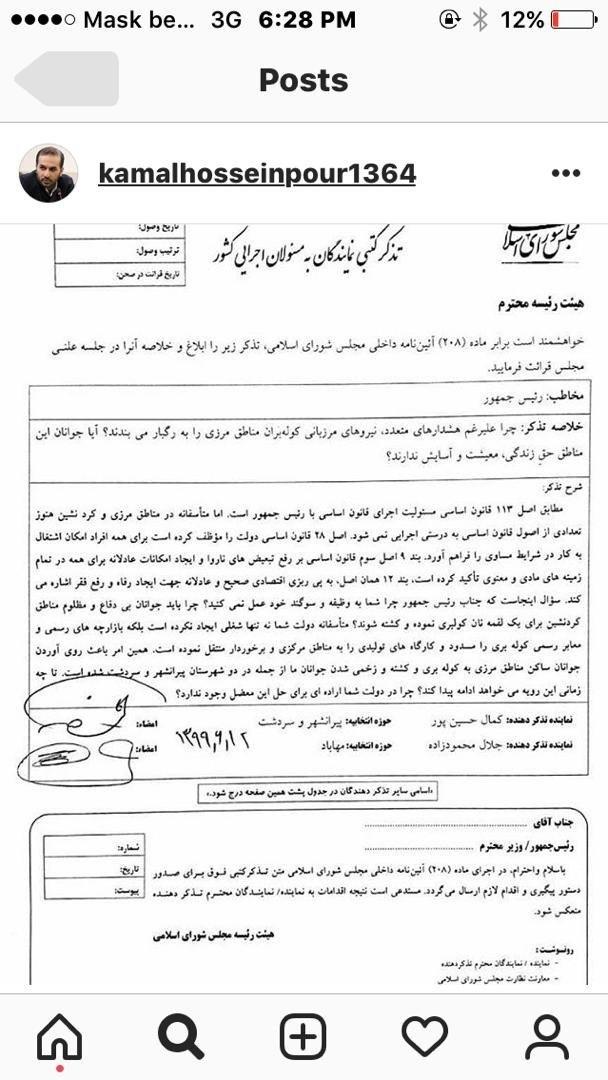 Mask be... 3G 6:28 PM 12%
Posts
kamalhosseinpour1364
مجلس شورای اسلامی
تذکر کتبی نمایندگان به مسئولان اجرایی کشور
تاریخ وصول:
ترتیب وصول:
تاریخ قرائت در صحن:
هیئت رئیسه محترم
خواهشمند است برابر ماده (۲۰۸) آئین‌نامه داخلی مجلس شورای اسلامی، تذکر زیر را ابلاغ و خلاصه آنرا در جلسه علنی
مجلس قرائت فرمایید.
مخاطب: رئیس جمهور
خلاصه تذکر: چرا علیرغم هشدارهای متعدد، نیروهای مرزبانی کوله‌بران مناطق مرزی را به رگبار می بندند؟ آیا جوانان این
مناطق حق زندگی، معیشت و آسایش ندارند؟
شرح تذکر:
مطابق اصل ۱۱۳ قانون اساسی مسئولیت اجرای قانون اساسی با رئیس جمهور است. اما متأسفانه در مناطق مرزی و کرد نشین هنوز
تعدادی از اصول قانون اساسی به درستی اجرایی نمی شود. اصل ۲۸ قانون اساسی دولت را مؤظف کرده است برای همه افراد امکان اشتغال
به کار در شرایط مساوی را فراهم آورد. بند ۹ اصل سوم قانون اساسی بر رفع تبعیض های ناروا و ایجاد امکانات عادلانه برای همه در تمام
زمینه های مادی و معنوی تأکید کرده است، بند ۱۲ همان اصل، به پی ریزی اقتصادی صحیح و عادلانه جهت ایجاد رفاه و رفع فقر اشاره می
کند. سؤال اینجاست که جناب رئیس جمهور چرا شما به وظیفه و سوگند خود عمل نمی کنید؟ چرا باید جوانان بی دفاع و مظلوم مناطق
کردنشین برای یک لقمه نان کولبری نموده و کشته شوند؟ متأسفانه دولت شما نه تنها شغلی ایجاد نکرده است بلکه بازارچه های رسمی و
معابر رسمی کوله بری را مسدود و کارگاه های تولیدی را به مناطق مرکزی و برخوردار منتقل نموده است. همین امر باعث روی آوردن
جوانان ساکن مناطق مرزی به کوله بری و کشته و زخمی شدن جوانان ما از جمله در دو شهرستان پیرانشهر و سردشت شده است. تا چه
زمانی این رویه می خواهد ادامه پیدا کند؟ چرا در دولت شما اراده ای برای حل این معضل وجود ندارد؟
نماینده تذکر دهنده: کمال حسین پور حوزه انتخابیه: پیرانشهر و سردشت امضاء:
نماینده تذکر دهنده: جلال محمودزاده حوزه انتخابیه: مهاباد ۱۳۹۹,۶,۱۲ امضاء:
«اسامی سایر تذکر دهندگان در جدول پشت همین صفحه درج شود.»
جناب آقای
رئیس‌جمهور/ وزیر محترم
شماره:
تاریخ:
پیوست:
باسلام واحترام، در اجرای ماده (۲۰۸) آئین‌نامه داخلی مجلس شورای اسلامی متن تذکرکتبی فوق برای صدور
دستور پیگیری و اقدام لازم ارسال می‌گردد. مستدعی است نتیجه اقدامات به نماینده/ نمایندگان محترم تذکر دهنده
منعکس شود.
هیئت رئیسه مجلس شورای اسلامی
رونوشت:
- نماینده / نمایندگان محترم تذکردهنده
- معاونت نظارت مجلس شورای اسلامی